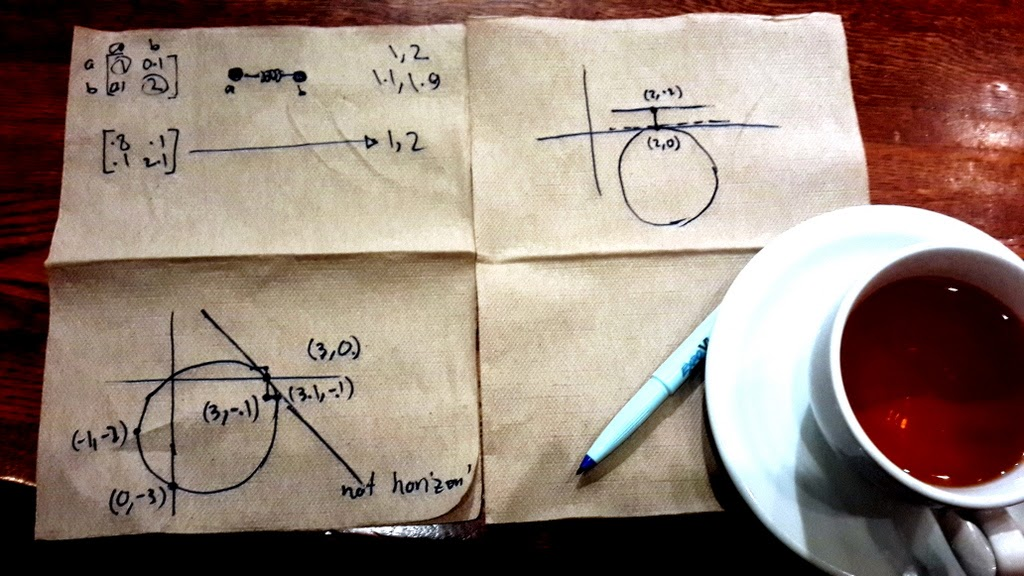 a b
a [1 0.1]
b [0.1 2]
a b
1, 2
1.1, 1.9
[.8 .1]
[.1 2.1]
1, 2
(2,-.2)
(2,0)
(3,0)
(3,-.1) (3.1,-.1)
(-1,-2)
(0,-3)
not horizon'